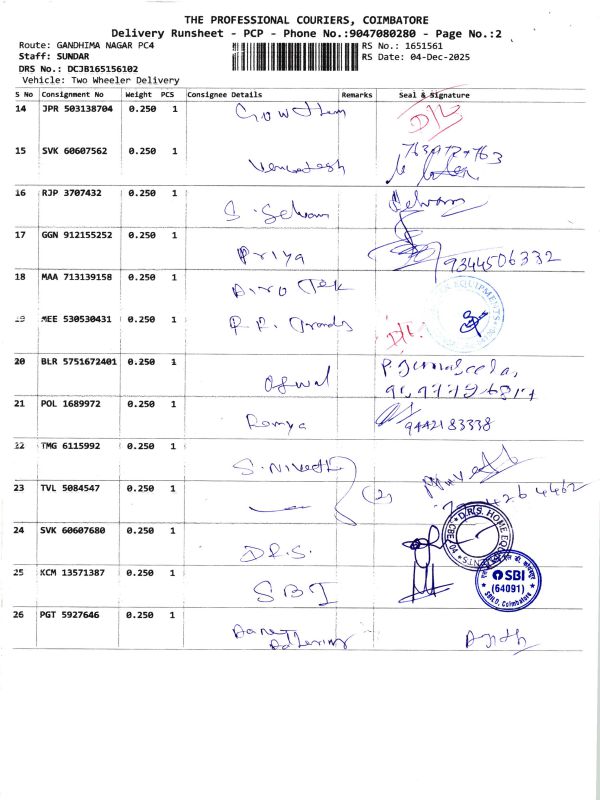 THE PROFESSIONAL COURIERS, COIMBATORE
Delivery Runsheet - PCP - Phone No.:9047080280 - Page No.:2
Route: GANDHIMA NAGAR PC4 RS No.: 1651561
Staff: SUNDAR RS Date: 04-Dec-2025
DRS No.: DCJB165156102
Vehicle: Two Wheeler Delivery
S No Consignment No Weight PCS Consignee Details Remarks Seal & Signature
14 JPR 503138704 0.250 1 Gowtham D/L
15 SVK 60607562 0.250 1 Vencatesh
16 RJP 3707432 0.250 1 S. Selvam Selvam
17 GGN 912155252 0.250 1 Priya 9344506332
18 MAA 713139158 0.250 1 Airo Tek
EQUIPMENTS
19 MEE 530530431 0.250 1 R.R. Grands D/L
20 BLR 5751672401 0.250 1
21 POL 1689972 0.250 1 Ramya 9442183338
22 TMG 6115992 0.250 1 S. Nivedh
23 TVL 5084547 0.250 1 (2)
24 SVK 60607680 0.250 1 D.R.S.
D.R.S. HOME EQUIPMENTS
25 KCM 13571387 0.250 1 SBI
SBI
(64091)
Coimbatore
26 PGT 5927646 0.250 1 Ajith